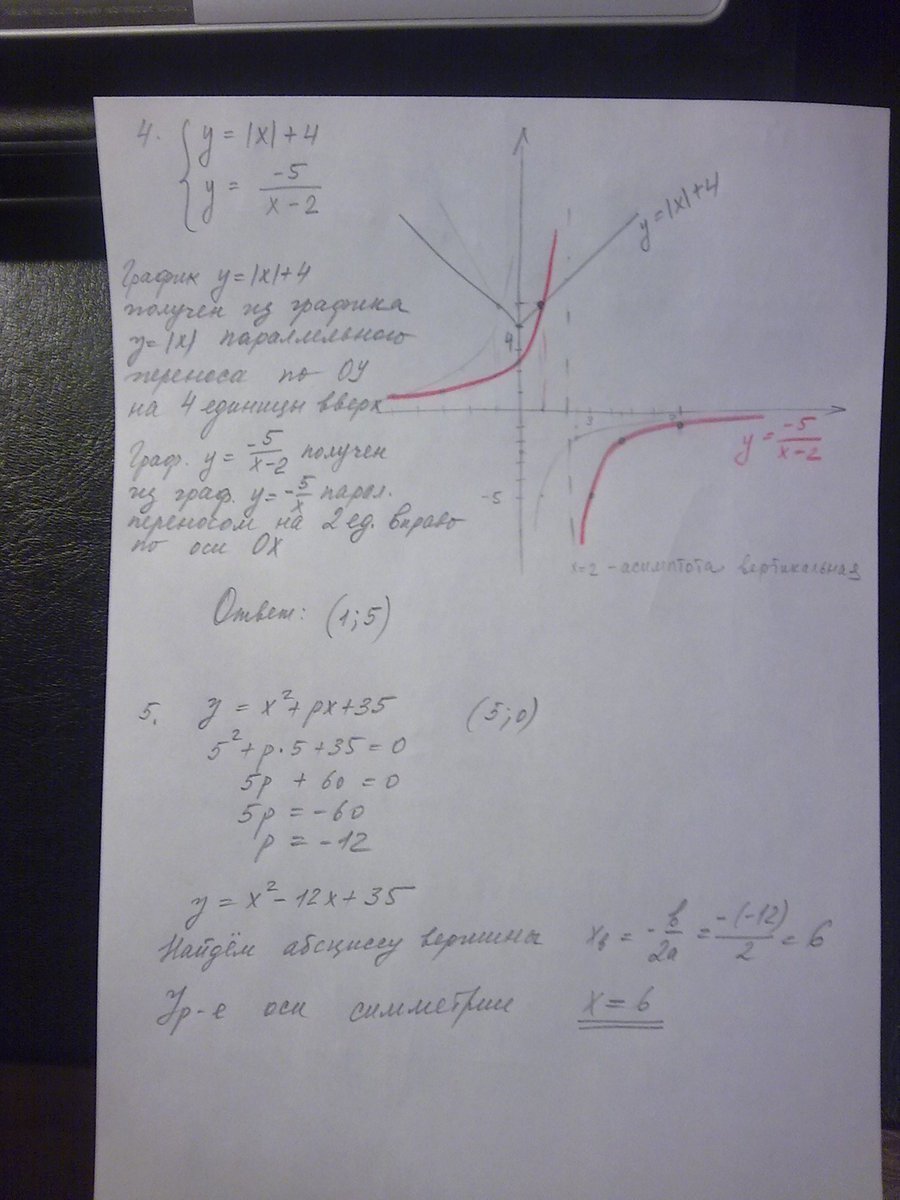 4. { y = |x| + 4
y = -5/(x-2)
y = |x|+4
График y = |x|+4
получен из графика
y = |x| параллельного
переноса по OY
на 4 единицы вверх
Граф. y = -5/(x-2) получен
из граф. y = -5/x парал.
переносом на 2 ед. вправо
по оси OX
4
3
-5
y = -5/(x-2)
x=2 - асимптота вертикальная
Ответ: (1;5)
5. y = x² + px + 35 (5;0)
5² + p·5 + 35 = 0
5p + 60 = 0
5p = -60
p = -12
y = x² - 12x + 35
Найдём абсциссу вершины xв = -в/2a = -(-12)/2 = 6
Ур-е оси симметрии x = 6